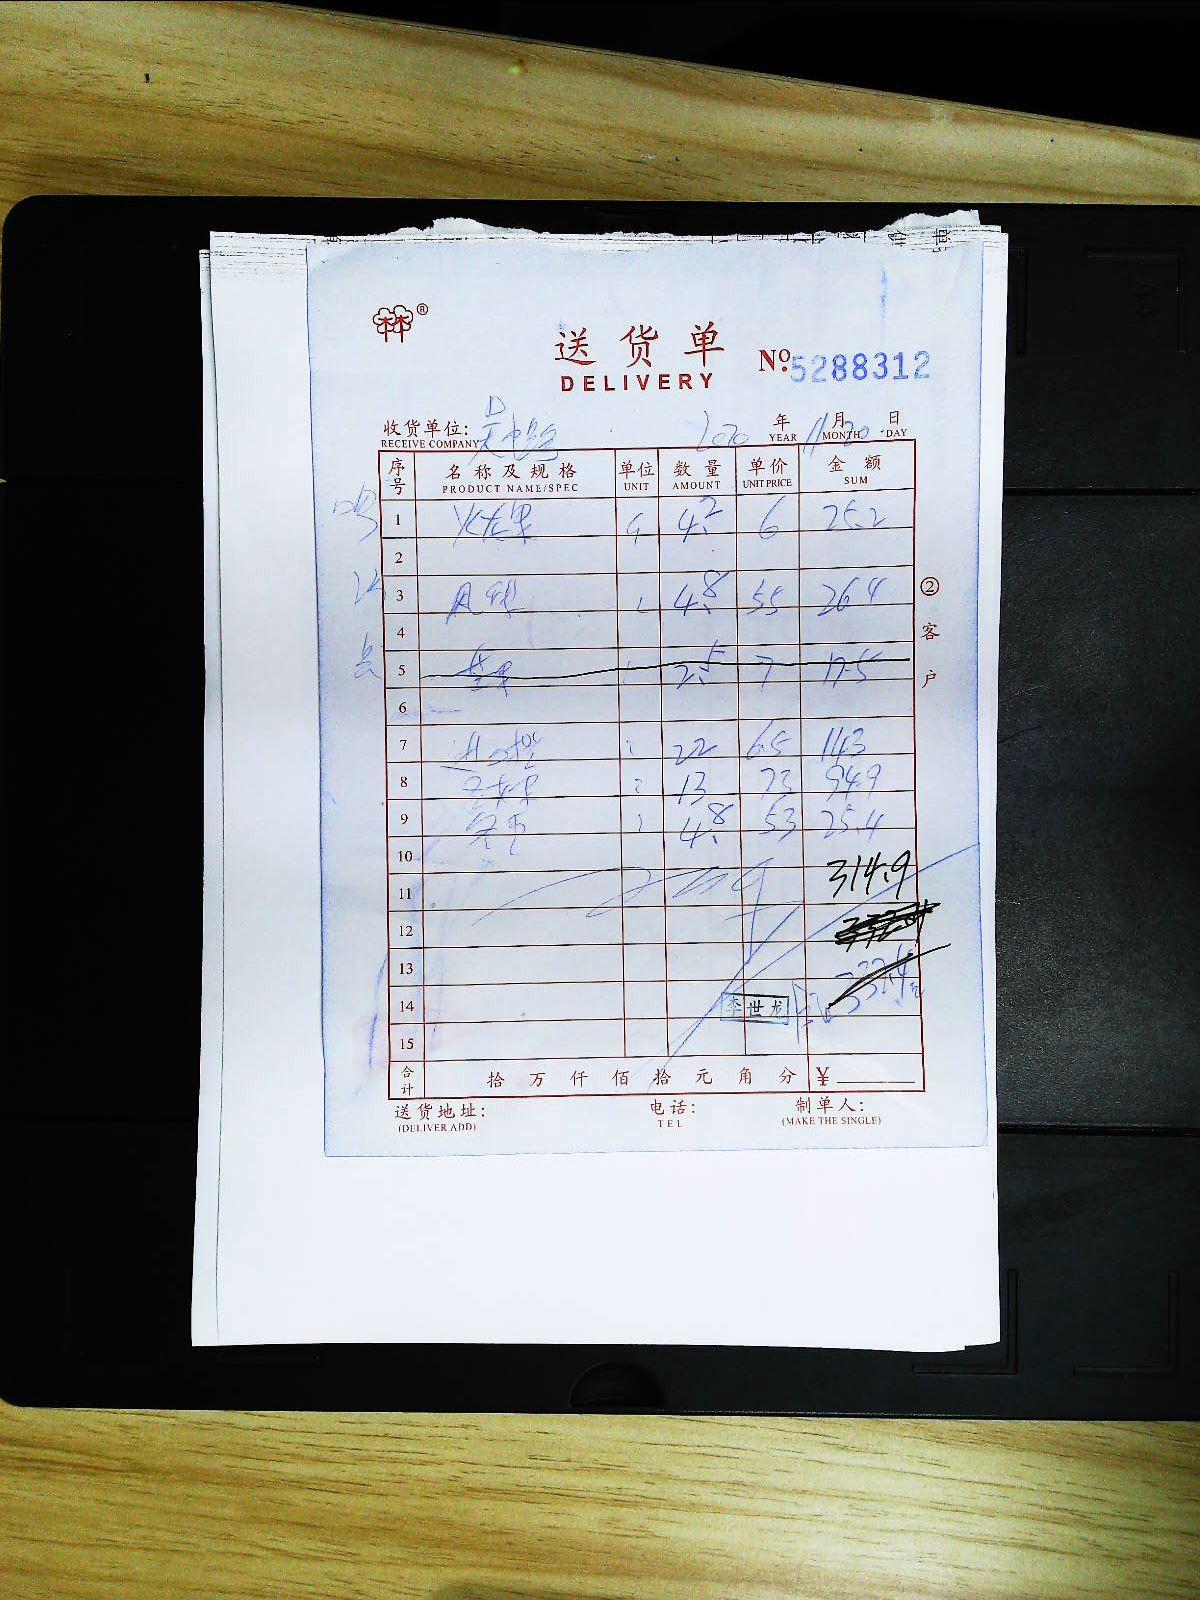 送货单
DELIVERY
№:5288312
收货单位:
RECEIVE COMPANY
2020 年 11 月 20 日
YEAR MONTH DAY
序号 名称及规格 单位 数量 单价 金额
PRODUCT NAME/SPEC UNIT AMOUNT UNIT PRICE SUM
1 火龙果 4.2 6 25.2
2
3 4.8 55 26.4
4
5 2.5 7 17.5
6
7 22 6.5 143
8 13 73 94.9
9 4.8 53 25.4
10
11 314.9
12
13 332.4
14 李世龙
15
合计 拾 万 仟 佰 拾 元 角 分 ¥
② 客户
送货地址: 电话: 制单人:
(DELIVER ADD) TEL (MAKE THE SINGLE)